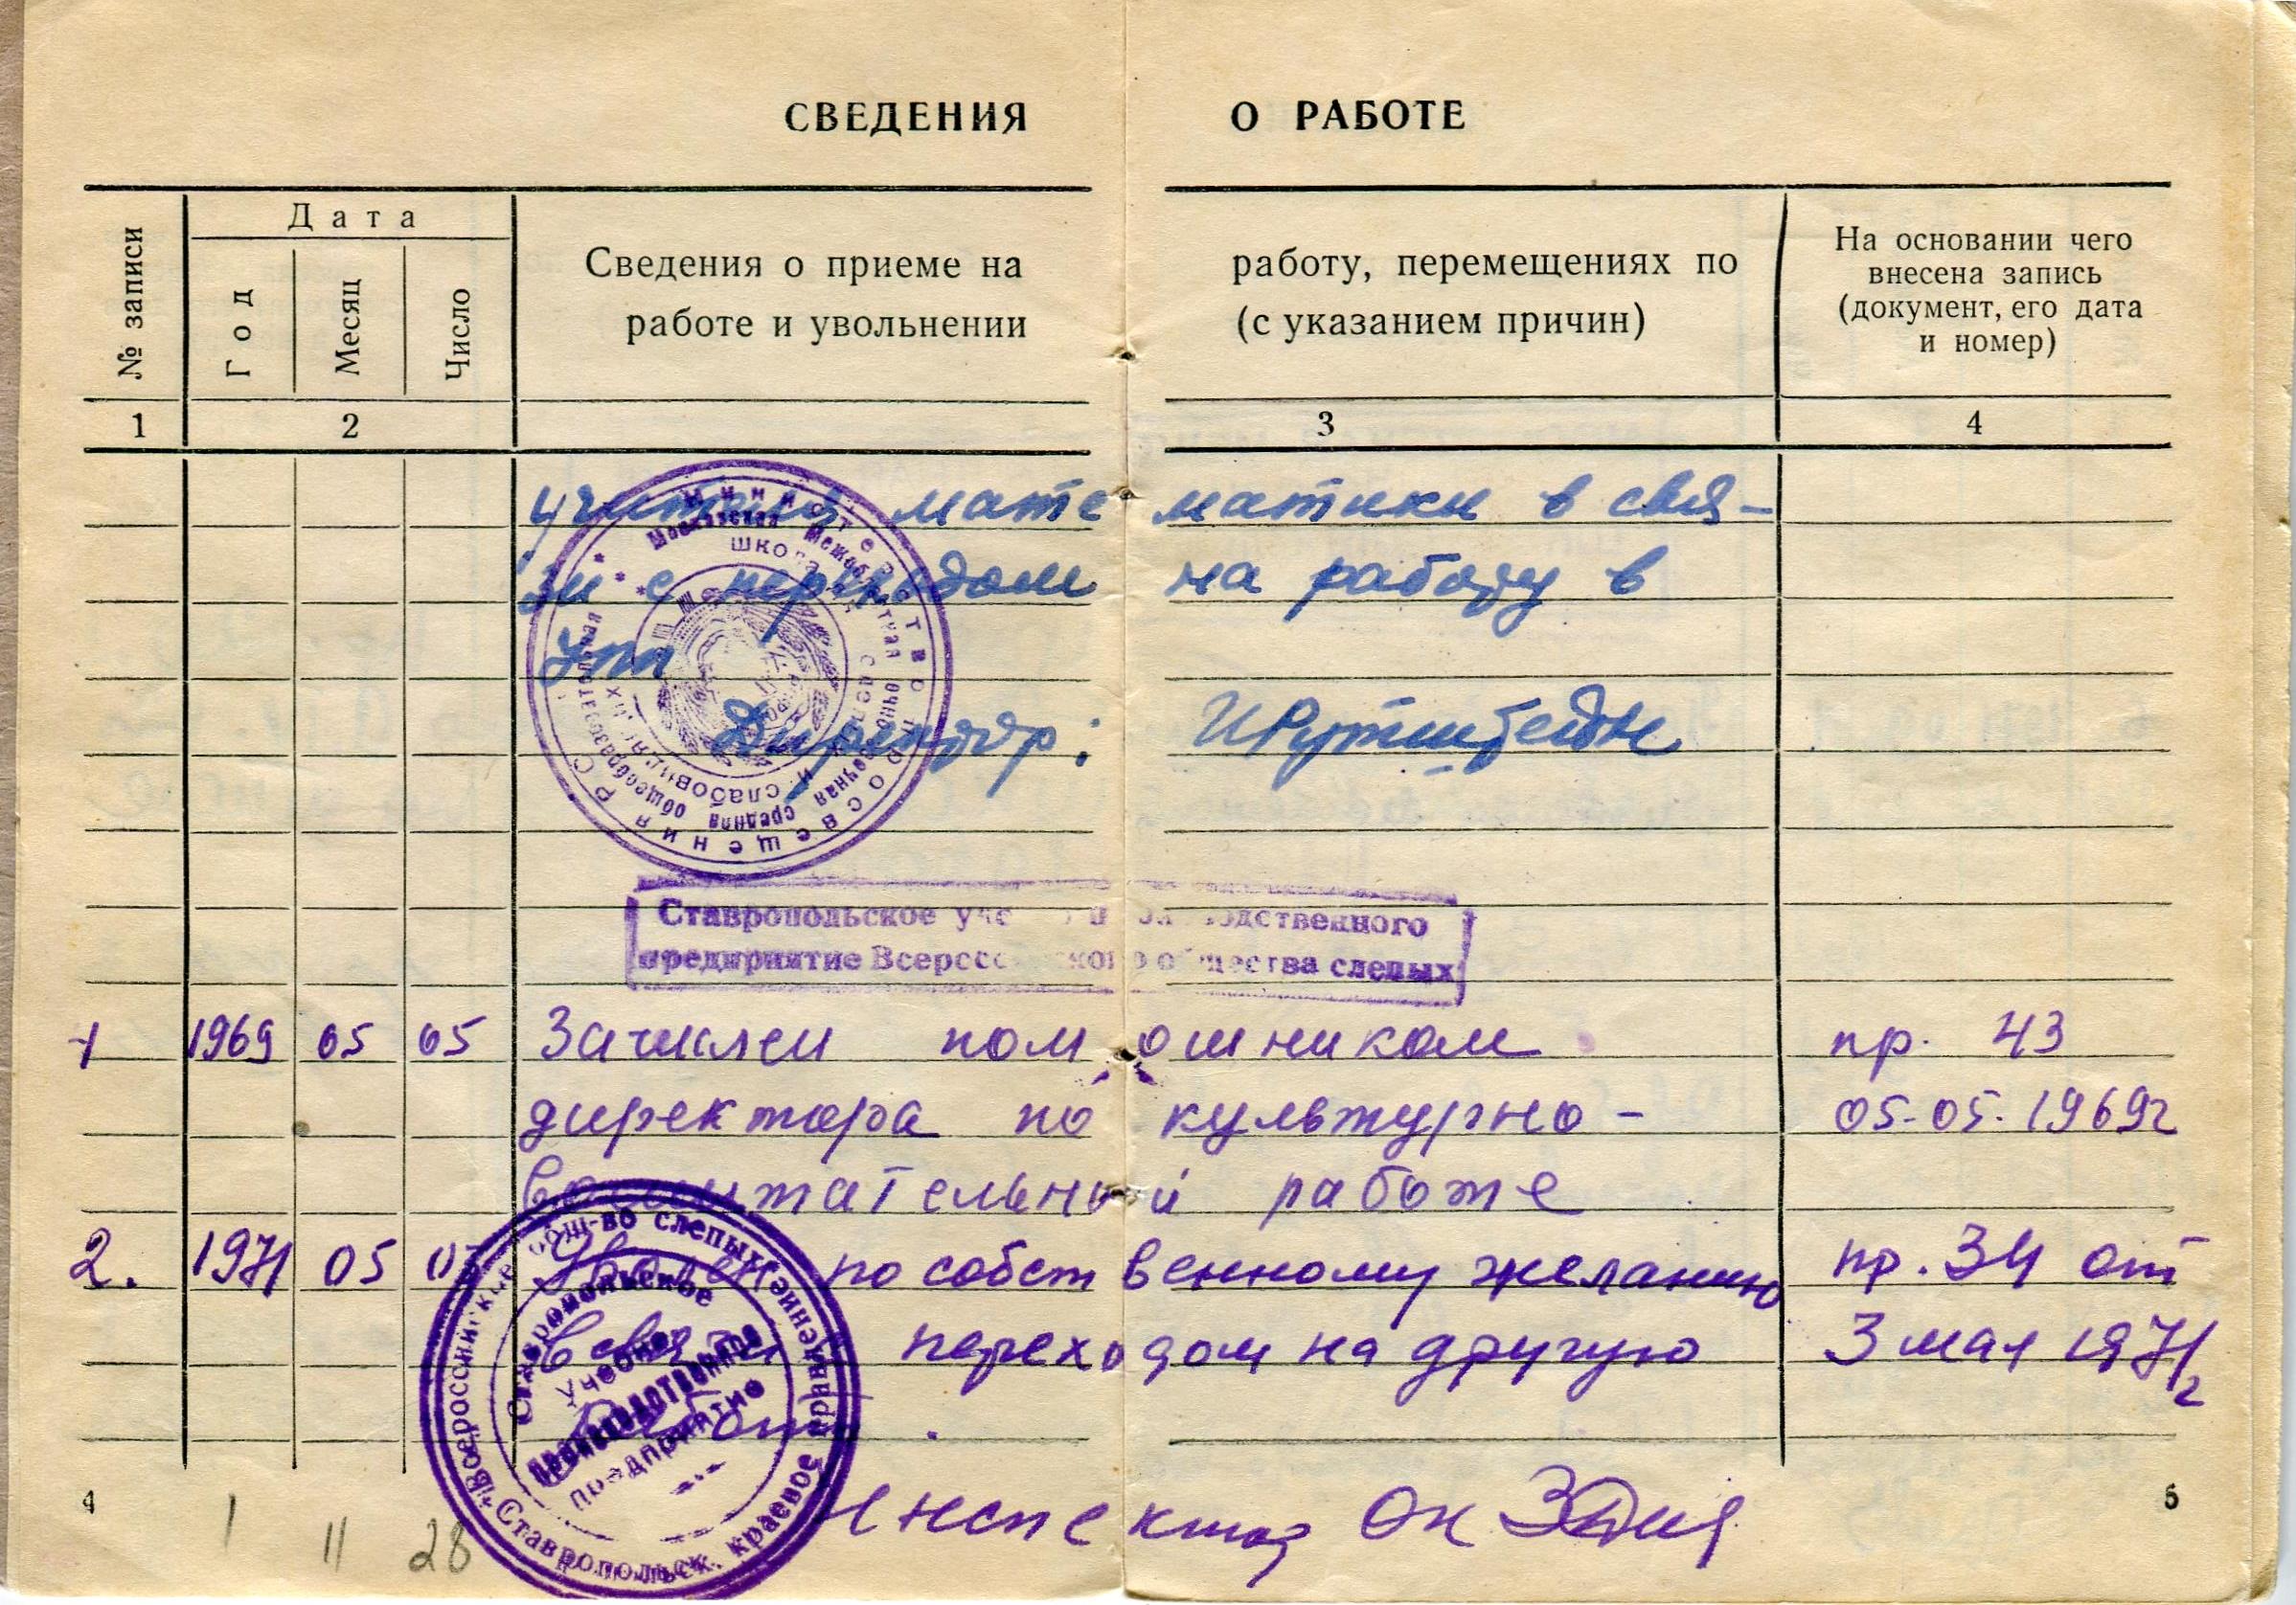 СВЕДЕНИЯ О РАБОТЕ
№ записи
Дата
Год
Месяц
Число
Сведения о приеме на работу, перемещениях по
работе и увольнении (с указанием причин)
На основании чего
внесена запись
(документ, его дата
и номер)
1 2 3 4
учителя математики в свя-
зи с переходом на работу в
УПП
Директор:
Министерство просвещения РС
Московская Межобластная
средняя общеобразовательная
школа
слабовид
Ставропольское производственного
предприятие Всероссийского общества слепых
1 1969 05 05 Зачислен помошником пр. 43
директора по культурно- 05-05-1969г
воспитательной работе
2. 1971 05 03 Уволен по собственному желанию пр. 34 от
В связи переходом на другую 3 мая 1971г
работу.
Всероссийское общ-во слепых
Ставропольск. краевое правление
Ставропольское
учебно
производственное
предприятие
Инспектор ОК
4 5
1 11 28